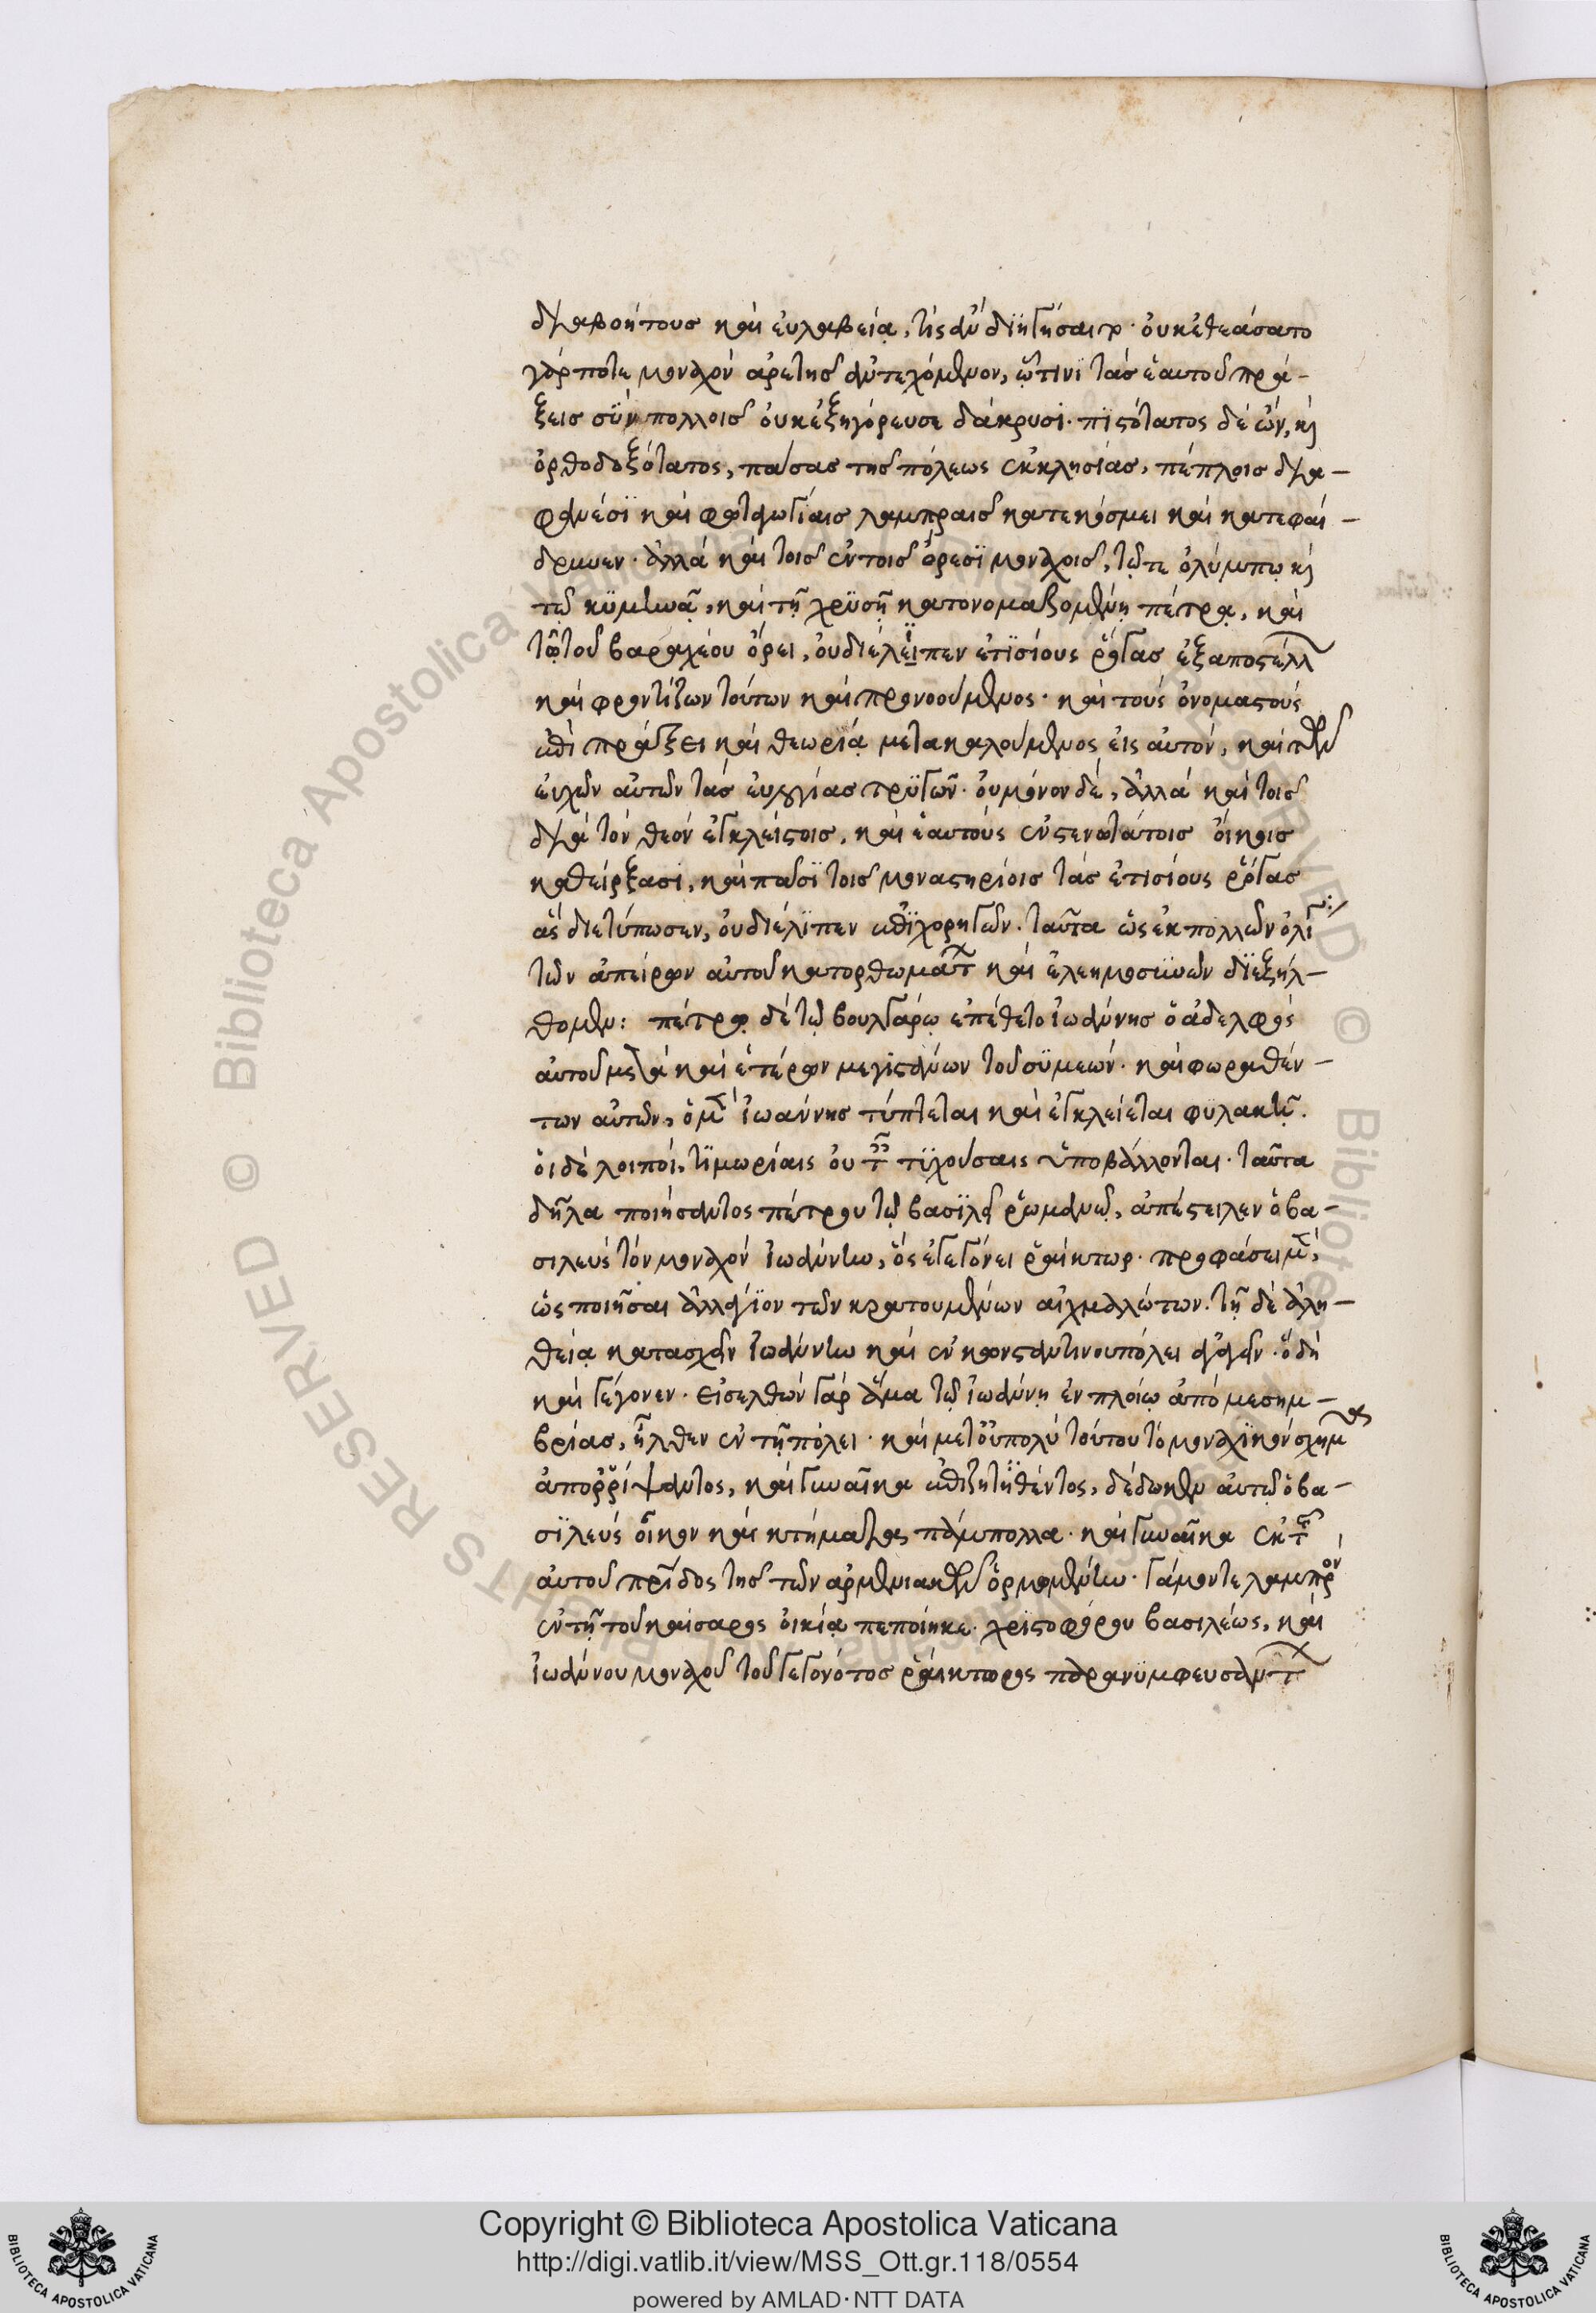 διαβοήτους καὶ ἐυλαβεία, τίς ἂν διηγήσαιτο· ὀυκἐθεάσατο
γάρ ποτε μοναχὸν ἀρετῆς ἀντεχόμενον, ὧτινι τὰς ἑαυτοῦ πρά-
ξεις σὺν πολλοῖς ὀυκἐξηγόρευσε δάκρυσι· πιστότατος δὲ ὢν, κ(αὶ)
ὀρθοδοξότατος, πάσας τῆς πόλεως ἐκκλησίας, πέπλοις δια-
φανέσι καὶ φωταγωγίαις λαμπραῖς κατεκόσμει καὶ κατεφαί-
δρυνεν· ἀλλὰ καὶ τοῖς ἐν τοῖς ὄρεσι μοναχοῖς, τῶτε ὀλύμπω κ(αὶ)
τῶ κυμινᾶ, καὶ τῆ χρυσῆ κατονομαζομένη πέτρα, καὶ
τῶ τοῦ βαραχέου ὄρει, ὀυδιέλειπεν ἐτησίους ῥόγας ἐξαποστέλλ
καὶ φροντίζων τούτων καὶ προνοούμενος· καὶ τοὺς ὀνομαστοὺς
ἐπὶ πράξει καὶ θεωρία μετακαλούμενος εἰς αὐτὸν, καὶ τῶν
ἐυχῶν αὐτῶν τὰς ἐυλογίας τρυγῶν· ὀυμόνον δὲ, ἀλλὰ καὶ τοῖς
διὰ τὸν θεὸν ἐγκλείστοις, καὶ ἑαυτοὺς ἐν στενωτάτοις οἴκοις
καθείρξασι, καὶ πᾶσι τοῖς μοναστηρίοις τὰς ἐτησίους ῥόγας
ἃς διετύπωσεν, ὀυδιέλιπεν ἐπιχορηγῶν· ταῦτα ὡς ἐκ πολλῶν ὀλίγ
τῶν ἀπείρων αὐτοῦ κατορθωμάτ καὶ ἐλεημοσυνῶν διεξήλ-
θομεν: πέτρω δὲ τῶ βουλγάρω ἐπέθετο ἰωάννης ὁ ἀδελφὸς
αὐτοῦ μετὰ καὶ ἑτέρων μεγιστάνων τοῦ συμεών· καὶ φωραθέν-
των αὐτῶν, ὁ μ(ὲν) ἰωάννης τύπτεται καὶ ἐγκλείεται φυλακῆ.
ὁι δὲ λοιποὶ, τιμωρίαις ὀυ τ(αῖς) τυχούσαις ὑποβάλλονται· ταῦτα
δῆλα ποιήσαντος πέτρου τῶ βασιλεῖ ῥωμανῶ, ἀπέστειλεν ὁ βα-
σιλεὺς τὸν μοναχὸν ἰωάννην, ὃς ἐγεγόνει ῥαίκτωρ· προφάσει μ(ὲν),
ὡς ποιῆσαι ἀλλάγιον τῶν κρατουμένων αἰχμαλώτων. τῆ δὲ ἀλη-
θεία κατασχεῖν ἰωάννην καὶ ἐν κωνσταντινουπόλει ἀγαγεῖν· ὃ δὴ
καὶ γέγονεν· εἰσελθὼν γὰρ ἅμα τῶ ἰωάννη ἐν πλοίω ἀπὸ μεσημ-
βρίας, ἦλθεν ἐν τῆ πόλει· καὶ μετ᾽ ὀυπολὺ τούτου τὸ μοναχικὸν σχῆμα
ἀπορρίψαντος, καὶ γυναῖκα ἐπιζητηθέντος, δέδωκεν αὐτῶ ὁ βα-
σιλεὺς οἶκον καὶ κτήματας πάμπολλα· καὶ γυναῖκα ἐκ τ(ῆς)
αὐτοῦ πρίδος τῆς τῶν ἀρμενιακῶν ὁρμωμένην· γάμον τε λαμπρὸν
ἐν τῆ τοῦ καίσαρος οἰκία πεποίηκε· χριστοφόρου βασιλέως, καὶ
ἰωάννου μοναχοῦ τοῦ γεγονότος ῥαίκτωρος παρανυμφευσάντ
Copyright © Biblioteca Apostolica Vaticana
http://digi.vatlib.it/view/MSS_Ott.gr.118/0554
powered by AMLAD·NTT DATA